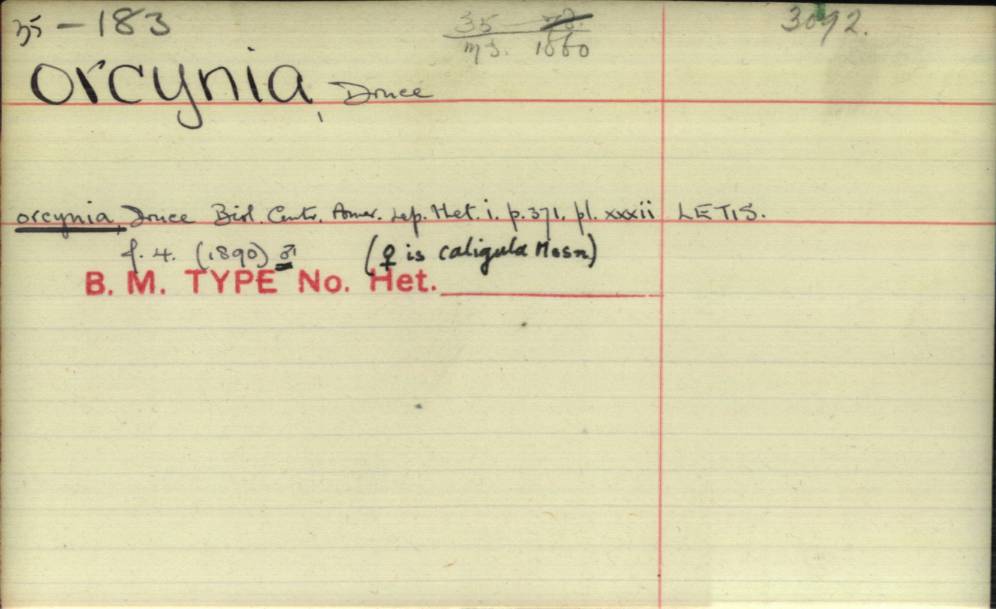 35 - 183
35
MS. 1860
3092.
orcynia, Druce
orcynia, Druce Biol. Centr. Amer. Lep. Het. i. p. 371. pl. xxxii LETIS.
f. 4. (1890) ♂ (♀ is caligula Mosn)
B. M. TYPE No. Het.